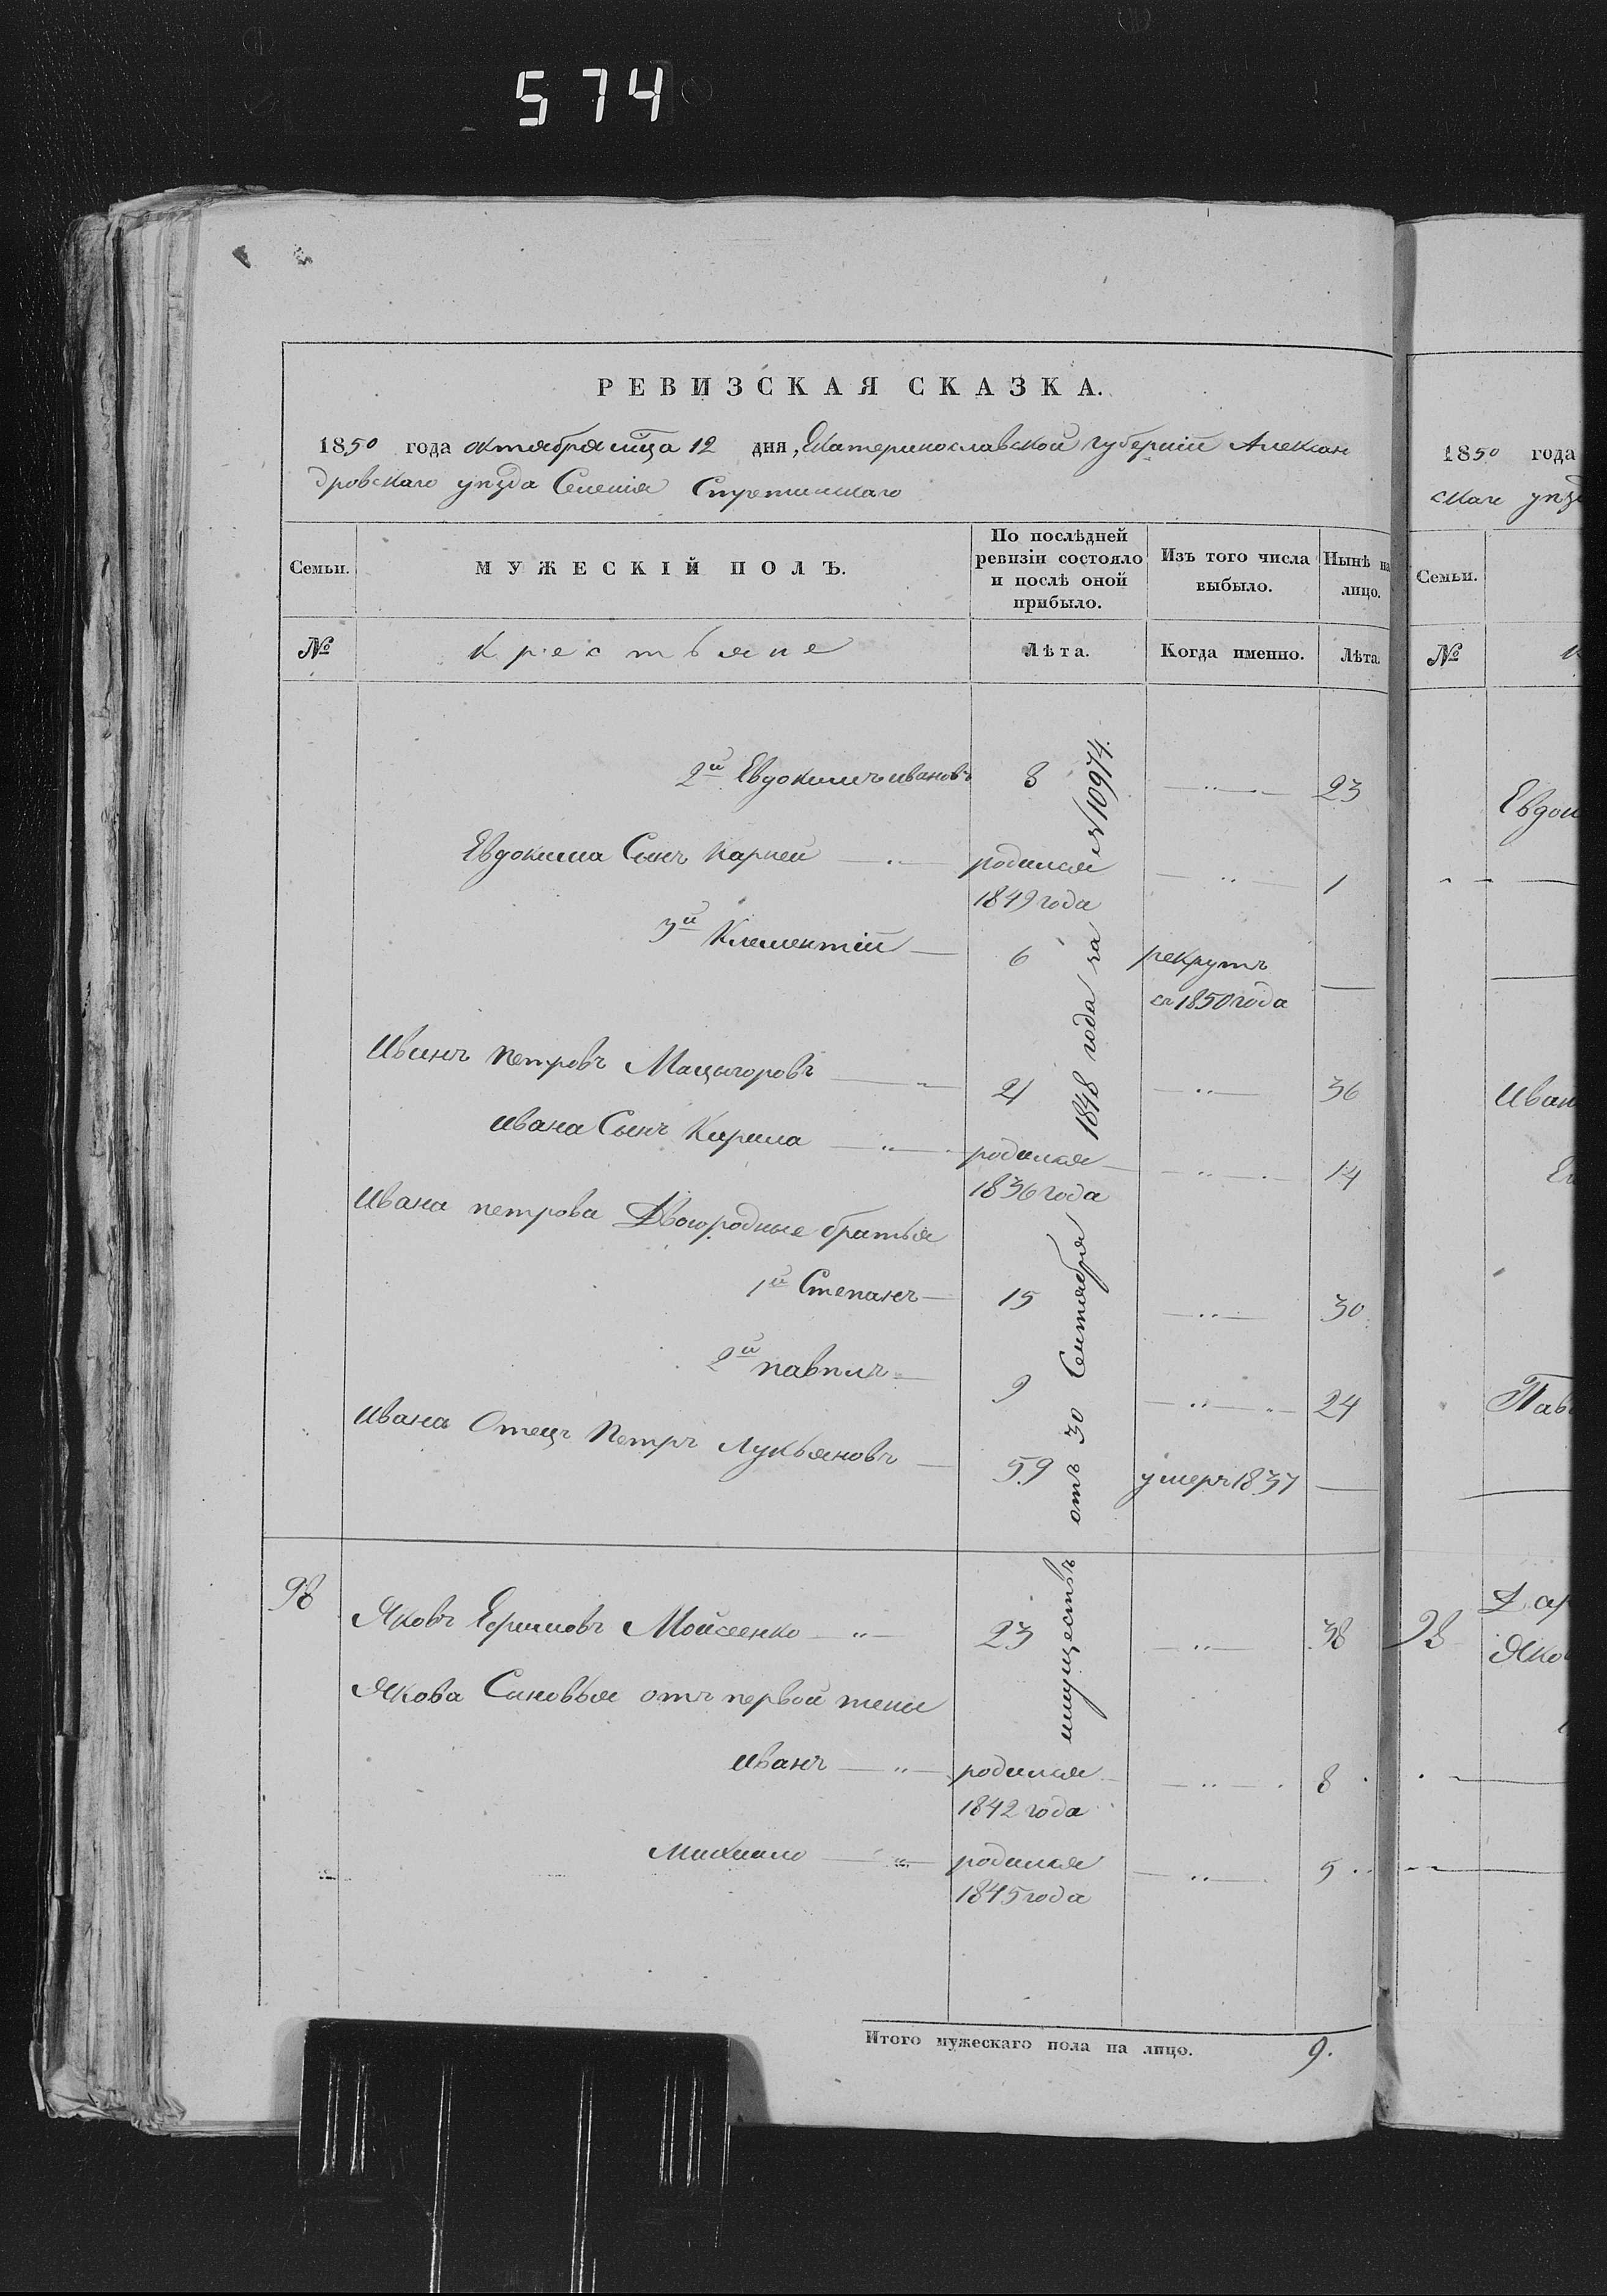 574
РЕВИЗСКАЯ СКАЗКА.
1850 года октября мца 12 дня, Екатеринославской губернии Алексан
дровскаго уезда Селения
Семьи. МУЖЕСКІЙ ПОЛЪ. По послѣдней ревизіи состояло и послѣ оной прибыло. Изъ того числа выбыло. Нынѣ на лицо.
№ крестьяне Лѣта. Когда именно. Лѣта.
2й Евдокимъ ивановъ 8 — „ — 23
Евдокима Сынъ Карней — „ — родился — „ — 1
1849 года
3й Клементій — 6 рекрутъ —
съ 1850 года
Иванъ петровъ Мацыгоровъ — „ 21 — „ — 36
ивана Сынъ Кирила — „ — родился — „ — 14
1836 года
Ивана петрова Двоюродные братья
1й Степанъ — 15 — „ — 30
2й павелъ — 9 — „ — 24
ивана Отецъ Петръ Лукьяновъ — 59 умеръ 1837 —
98 Яковъ Ефимовъ Мойсеенко — „ — 23 — „ — 38
Якова Сановья отъ первой жены
иванъ — „ — родился — „ — 8
1842 года
Михаило — „ — родился — „ — 5
1845 года
имуществъ отъ 30 Сентября 1848 года за № 10974.
Итого мужескаго пола на лицо. 9.
1850 года
скаго уезд
Семьи.
№
Евдок
Иван
Пав
98 Дар
Яко